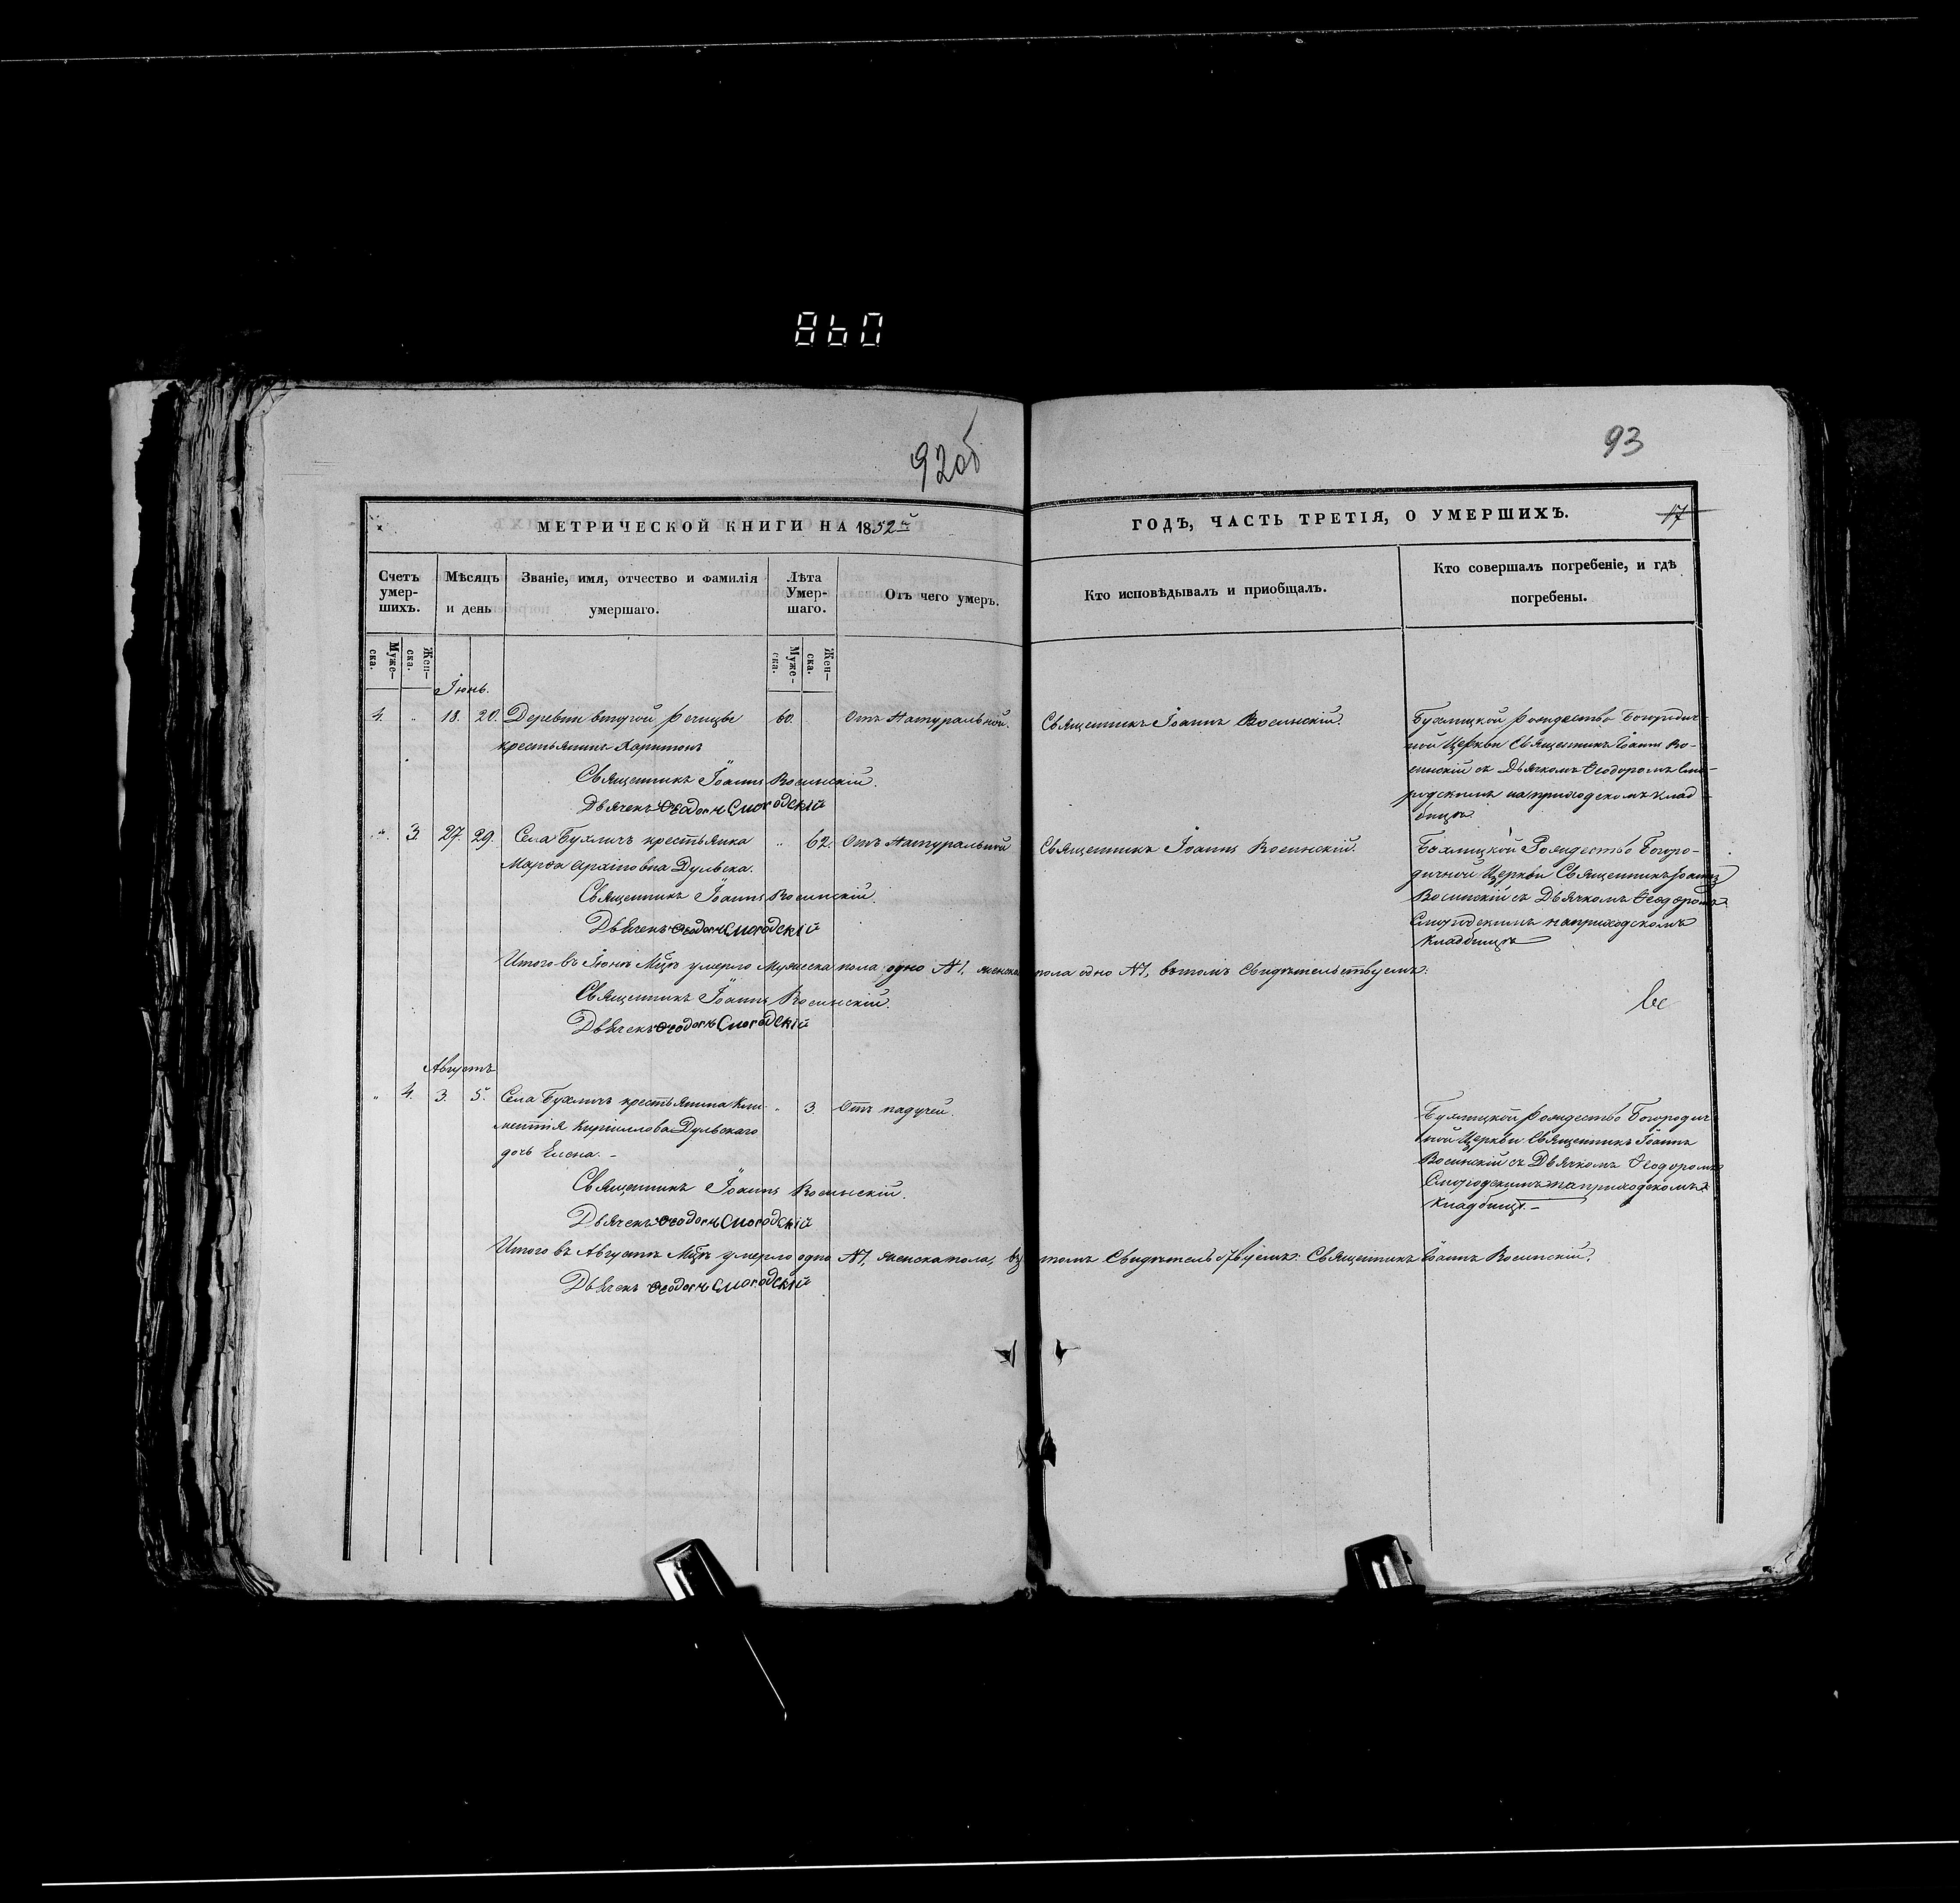 860
92 об
93
МЕТРИЧЕСКОЙ КНИГИ НА 1852й
ГОДЪ, ЧАСТЬ ТРЕТІЯ, О УМЕРШИХЪ.
17
Счетъ умер-шихъ.
Мѣсяцъ и день
Званіе, имя, отчество и фамилія умершаго.
Лѣта Умер-шаго.
Отъ чего умеръ.
Кто исповѣдывалъ и приобщалъ.
Кто совершалъ погребеніе, и гдѣ погребены.
Муже-ска.
Жен-ска.
Муже-ска.
Жен-ска.
Іюнь.
4. „ 18. 20. Деревни второй Речицы 60. Отъ Натуральной. Священникъ Іоаннъ Восинскій.
крестьянинъ Харитонъ
Священникъ Іоаннъ Восинскій.
Дьячекъ Ѳеодоръ Смогодскій
Бухлицкой Рождество Богородич-
ной Церкви Священникъ Іоаннъ Во-
синскій съ Дьячкомъ Ѳеодоромъ Смо-
родскимъ на приходскомъ клад-
бищѣ
„ 3. 27. 29. Села Бухличъ крестьянка „ 62. Отъ Натуральной Священникъ Іоаннъ Восинскій.
Марѳа Архіповна Дульска.
Священникъ Іоаннъ Восинскій.
Дьячекъ Ѳеодоръ Смогодскій
Бухлицкой Рождество Богоро-
дичной Церкви Священникъ Іоаннъ
Восинскій съ Дьячкомъ Ѳеодоромъ
Смогодскимъ на приходскомъ
кладбищѣ
Итого въ Іюнѣ Мцѣ умерло Мужеска пола одно №1, женска пола одно №1, въ томъ Свидѣтельствуемъ:
Священникъ Іоаннъ Восинскій.
Дьячекъ Ѳеодоръ Смогодскій
Августъ
„ 4. 3. 5. Села Бухличъ крестьянина Кли- „ 3. Отъ падучей.
ментія Кириллова Дульскаго
дочь Елена. –
Священникъ Іоаннъ Восинскій.
Дьячекъ Ѳеодоръ Смогодскій
Бухлицкой Рождество Богородич-
ной Церкви Священникъ Іоаннъ
Восинскій съ Дьячкомъ Ѳеодоромъ
Смогодскимъ на приходскомъ
кладбищѣ. –
Итого въ Августѣ Мцѣ умерло одно №1, женска пола, въ томъ Свидѣтельствуемъ: Священникъ Іоаннъ Восинскій.
Дьячекъ Ѳеодоръ Смогодскій